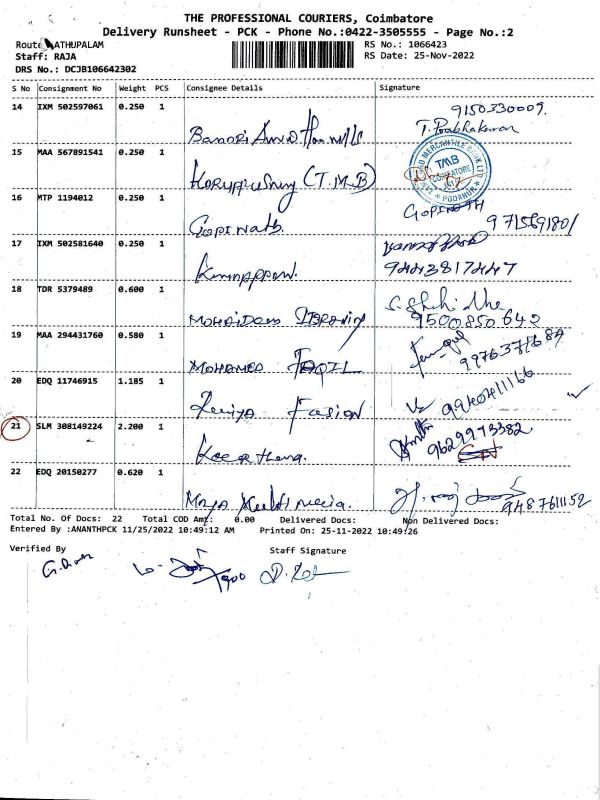 THE PROFESSIONAL COURIERS, Coimbatore
Delivery Runsheet - PCK - Phone No.:0422-3505555 - Page No.:2
Route ATHUPALAM
RS No.: 1066423
Staff: RAJA
RS Date: 25-Nov-2022
DRS No.: DCJB106642302
S No Consignment No Weight PCS Consignee Details Signature
14 IXM 502597061 0.250 1
9150330009.
T. Prabhakaran
15 MAA 567891541 0.250 1
(T.M.B)
TMB
COIMBATORE
PODANUR
16 MTP 1194012 0.250 1
Gopinath.
GOPINATH
9715691801
17 IXM 502581640 0.250 1
Kannappan.
9443817447
18 TDR 5379489 0.600 1
MOHAIDEEN IBRAHIM
9500850642
19 MAA 294431760 0.580 1
MOHAMED FAZIL
20 EDQ 11746915 1.185 1
Fusion
9940411166
21 SLM 308149224 2.200 1
Keerthana.
9629973382
22 EDQ 20150277 0.620 1
Maya
9487611152
Total No. Of Docs: 22 Total COD Amt: 0.00 Delivered Docs: Non Delivered Docs:
Entered By :ANANTHPCK 11/25/2022 10:49:12 AM Printed On: 25-11-2022 10:49:26
Verified By Staff Signature